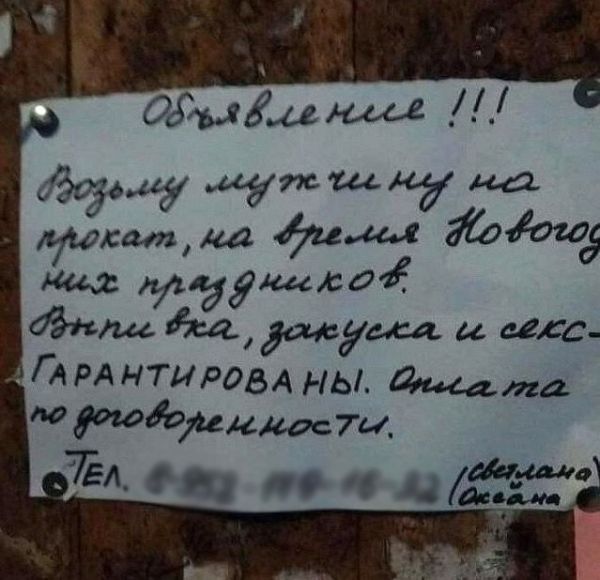 Объявление !!!
Возьму мужчину на
прокат, на время Новогод
них праздников.
Выпивка, закуска и секс-
ГАРАНТИРОВАНЫ. Оплата
по договоренности.
ТЕЛ.
(Светлана)
(Оксана